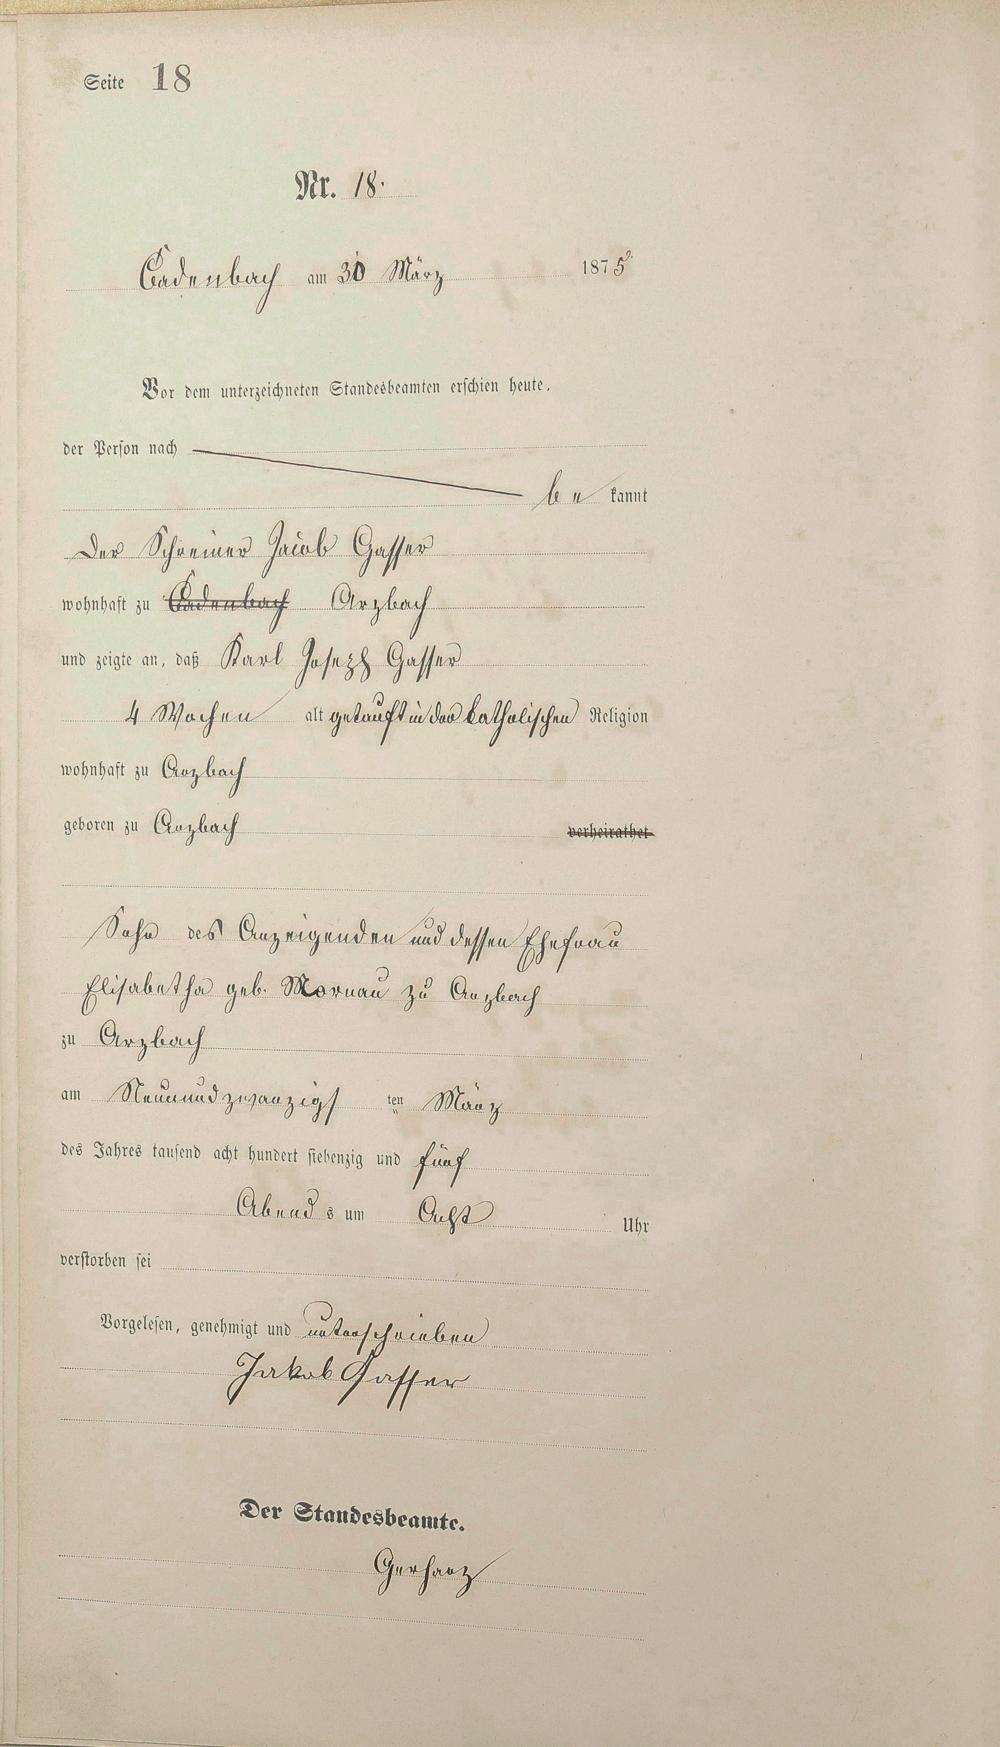 Seite 18
Nr. 18.
Cadenbach am 30 März 1875
Vor dem unterzeichneten Standesbeamten erschien heute,
der Person nach
be kannt
Der Schreiner Jacob Gasser
wohnhaft zu Cadenbach Arzbach
und zeigte an, daß Karl Joseph Gasser
4 Wochen alt getauft in der katholischen Religion
wohnhaft zu Arzbach
geboren zu Arzbach verheirathet
Sohn des Anzeigenden und dessen Ehefrau
Elisabetha geb. Mornau zu Arzbach
zu Arzbach
am Neunundzwanzigs ten März
des Jahres tausend acht hundert siebenzig und fünf
Abends um Acht Uhr
verstorben sei
Vorgelesen, genehmigt und unterschrieben
Jakob Gasser
Der Standesbeamte.
Gerharz